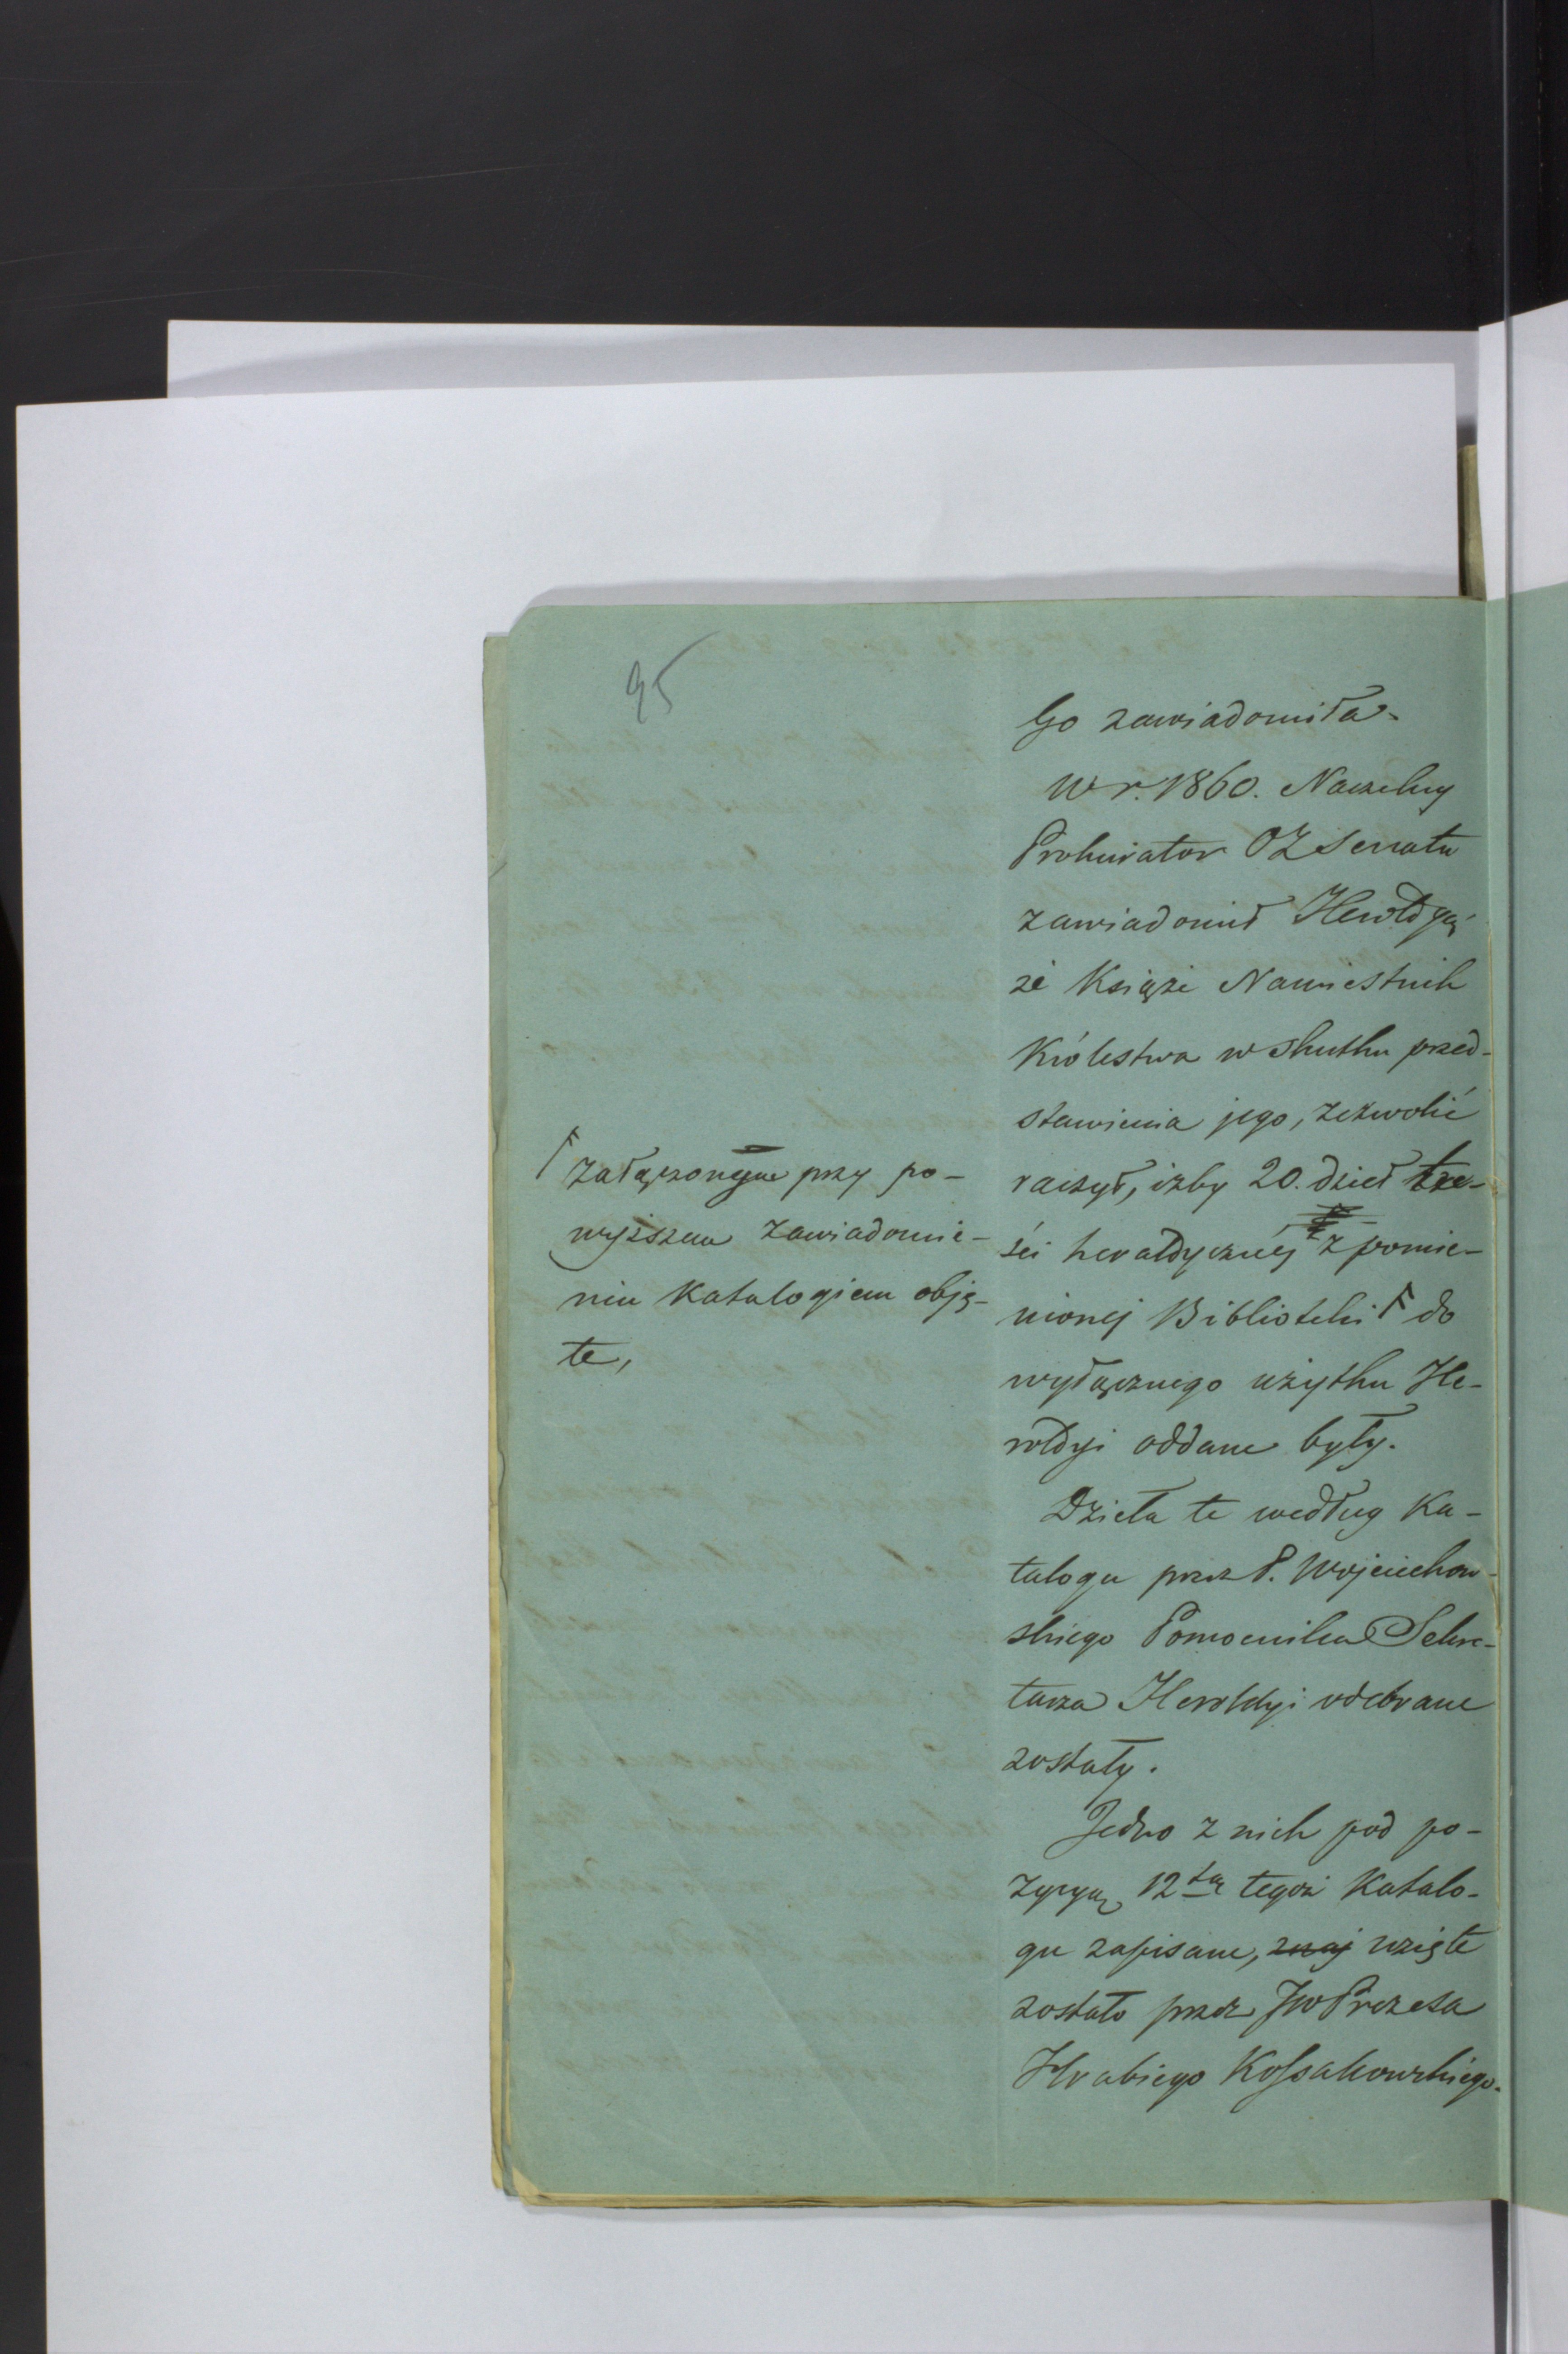 95
Go zawiadomiła.
W r. 1860. Naczelny
Prokurator OZ Senatu
zawiadomił Heroldyą
że Książe Namiestnik
Królestwa w skutku przed-
stawienia jego, zezwolić
raczył, iżby 20. dzieł tre-
ści heraldycznej z pomie-
nionej Biblioteki Γ do
wyłącznego użytku He-
roldyi oddane były.
Dzieła te według Ka-
talogu przez P. Wojciechow-
skiego Pomocnika Sekre-
tarza Heroldyi odebrane
zostały.
Jedno z nich pod po-
zycyą 12tą tegoż Katalo-
gu zapisane, znaj wzięte
zostało przez JW Prezesa
Hrabiego Kossakowskiego.
Γ załączonym przy po-
wyższem zawiadomie-
niu Katalogiem obję-
te,